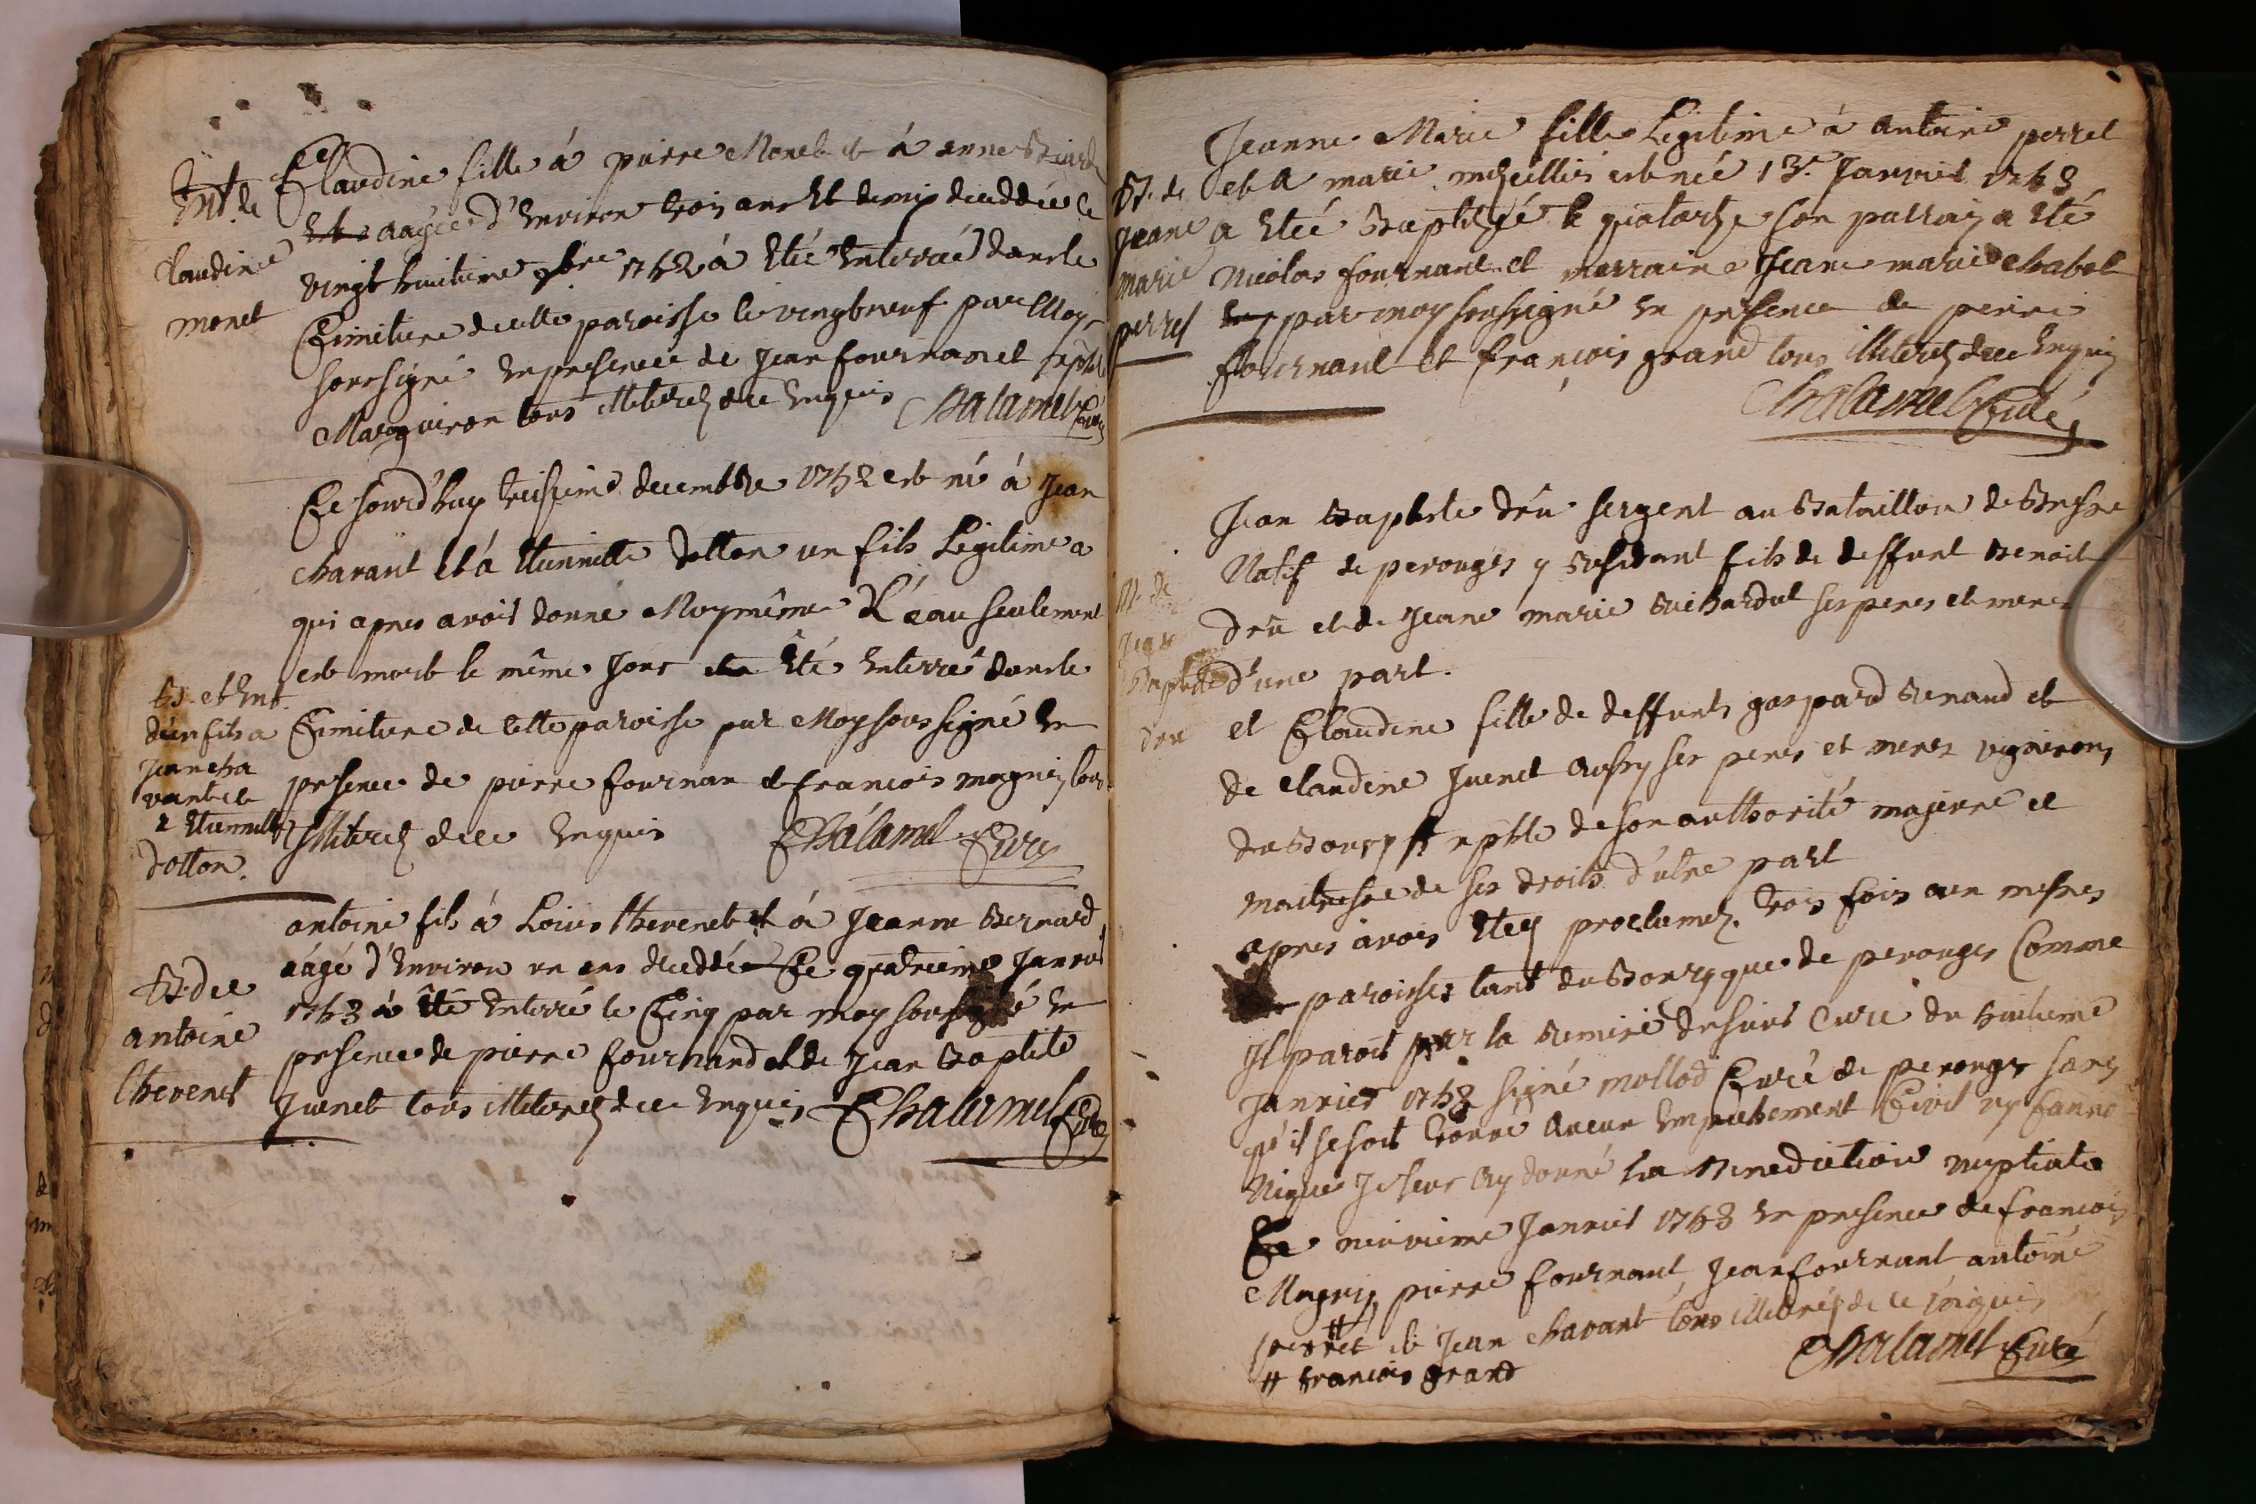 Ent. de
Claudine
monet
Claudine fille á pierre Monet et á anne
aagée d'Environ trois ans Et demy decedée Ce
vingt huitieme 9bre 1762 á Eté Enterrée dans le
Cimitiere de cette paroisse le vingt neuf par Moy
soussigné En presence de Jean fournand et
Marguiron tous illiterez de ce Enquis Chalamel Curé
B. et Ent.
d'un fils a
Jean cha
vant et
a Etiennette
dotton.
Ce jourd'huy treisieme decembre 1762 est né á Jean
chavant et á Etiennette dotton un fils Legitime a
qui apres avoir donné Moy même L'éau seulement
est mort le même Jour Eté Enterré dans le
Cimitiere de cette paroisse par Moy soussigné En
presence de pierre fournan et francois magnin tous
Illiterez de ce Enquis Chalamel Curé
B. de
antoine
thevenet
antoine fils á Louis thevenet et á Jeanne Bernard
aágé d'Environ un ans decedé Ce quatrieme Janvier
1763 á Eté Enterré le Cinq par moy soussigné En
presence de pierre fournand et de Jean Baptiste
Juenet tous illiterez de ce Enquis Chalamel Curé
B. de
Jeane
marie
perret
Jeanne Marie fille Legitime á antoine perret
et a marie est née 13e Janvier 1763
a Eteé Baptizée le quatorze son parrain a Eté
Nicolas fournant et marraine Jeane marie chabot
par moy soussigné En presence de pierre
fournant et françois grand tous illiterez de ce Enquis
Chalamel Curé
M. de
Jean
Baptiste
dru
Jean Baptiste drû sergent au Bataillon de Bresse
Natif de perouges y Residant fils de deffunt Benoit
drû et de Jeane marie Richardet ses peres et meres
d'une part.
et Claudine fille de deffunts gaspard Renaud et
de Claudine Juenet Aussy ses peres et meres vignerons
du Bourg st de son authorité majeure et
maitresse de ses droits d'utre part
apres avoir Etez proclamez trois fois aux messes
de paroisses tant du Bourg que de perouges Comme
Il paroit par la Remise du sieur Curé du huitieme
Janvier 1763 signé mollod Curé de perouges sans
qu'il se soit trouvé Aucun Empechement Civil ny Canno
nique Je leur Ay donné La Benediction nuptiale
Ce neuvieme Janvier 1763 En presence de francois
Magnin, pierre fournant, Jean fournant antoine
perret # et Jean chavant tous illiterez de ce enquis
# francois grand
Chalamel Curé